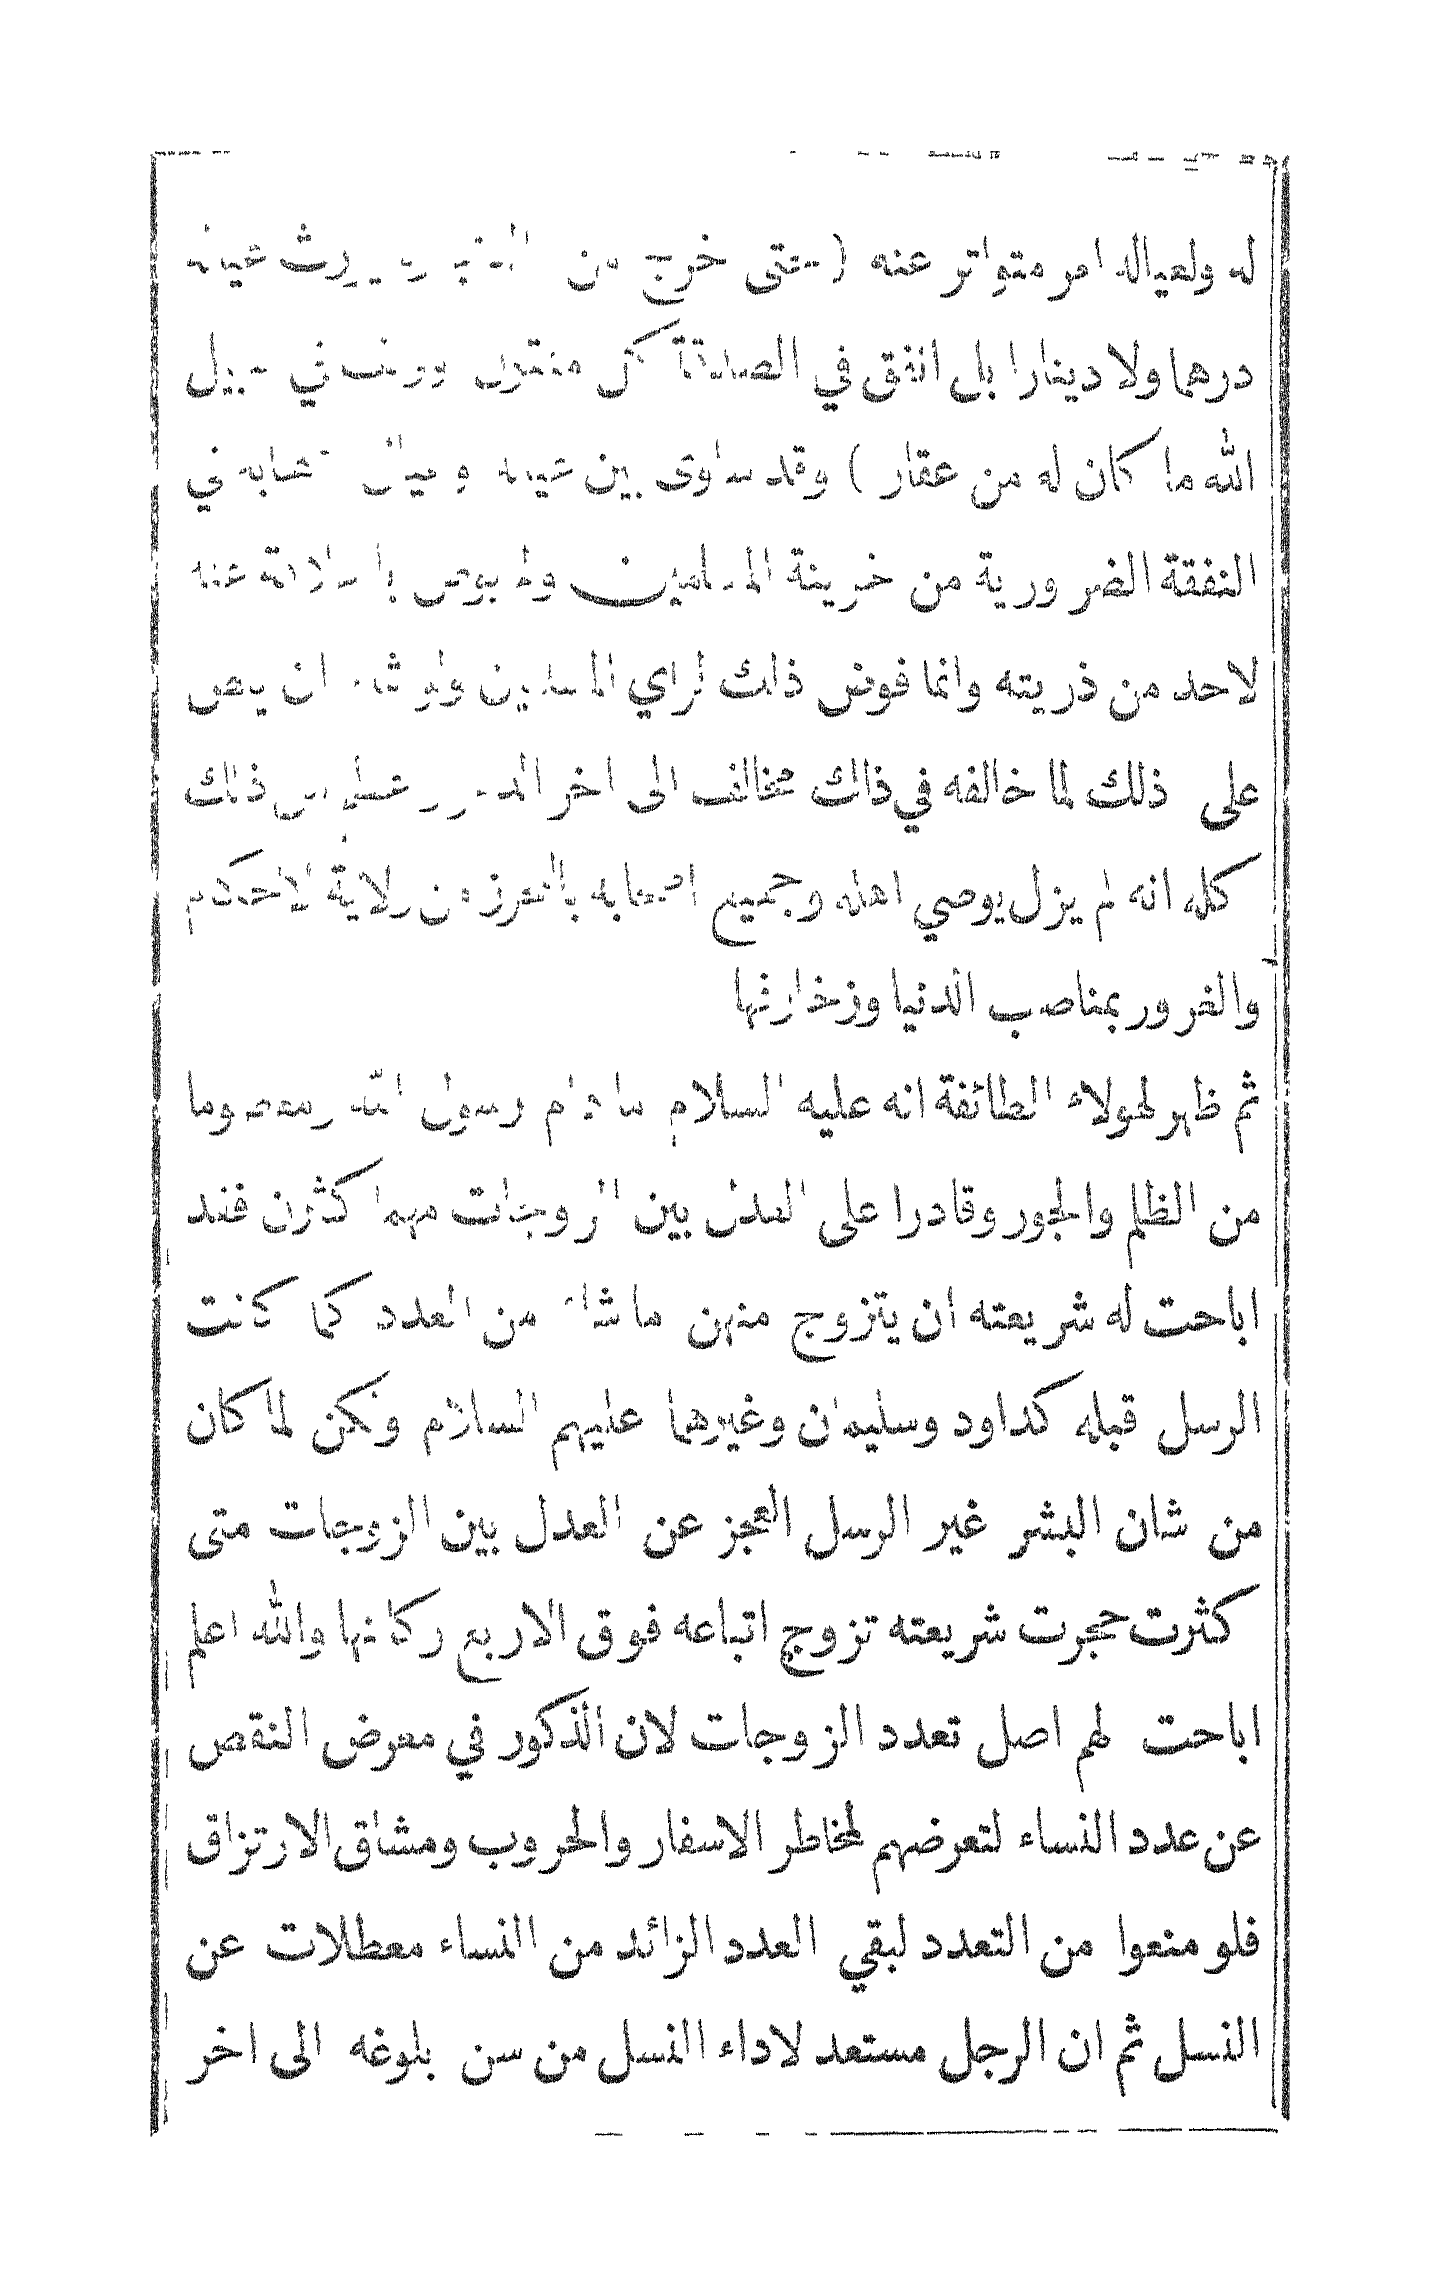 له ولعياله امر متواتر عنه (حتى خرج من الدنيا ولم يورث عياله
درهما ولا دينارا بل انفق في الصدقة كل منقول ووقف في سبيل
الله ما كان له من عقار) وقد ساوى بين عياله وعيال اصحابه في
النفقة الضرورية من خزينة المسلمين ولم يوص بالخلافة عنه
لاحد من ذريته وانما فوض ذلك لراي المسلمين ولو شاء ان يوصي
على ذلك لما خالفه في ذلك مخالف الى اخر الدهور وعظيم من ذلك
كله انه لم يزل يوصي اهله وجميع اصحابه بالتحرز من ولاية الاحكام
والغرور بمناصب الدنيا وزخارفها
ثم ظهر لهولاء الطائفة انه عليه السلام ما دام رسول الله معصوما
من الظلم والجور وقادرا على العدل بين الزوجات مهما كثرن فقد
اباحت له شريعته ان يتزوج منهن ما شاء من العدد كما كانت
الرسل قبله كداود وسليمان وغيرهما عليهم السلام ولكن لما كان
من شان البشر غير الرسل العجز عن العدل بين الزوجات متى
كثرت حجرت شريعته تزوج اتباعه فوق الاربع وكانها والله اعلم
اباحت لهم اصل تعدد الزوجات لان الذكور في معرض النقص
عن عدد النساء لتعرضهم لمخاطر الاسفار والحروب ومشاق الارتزاق
فلو منعوا من التعدد لبقي العدد الزائد من النساء معطلات عن
النسل ثم ان الرجل مستعد لاداء النسل من سن بلوغه الى اخر